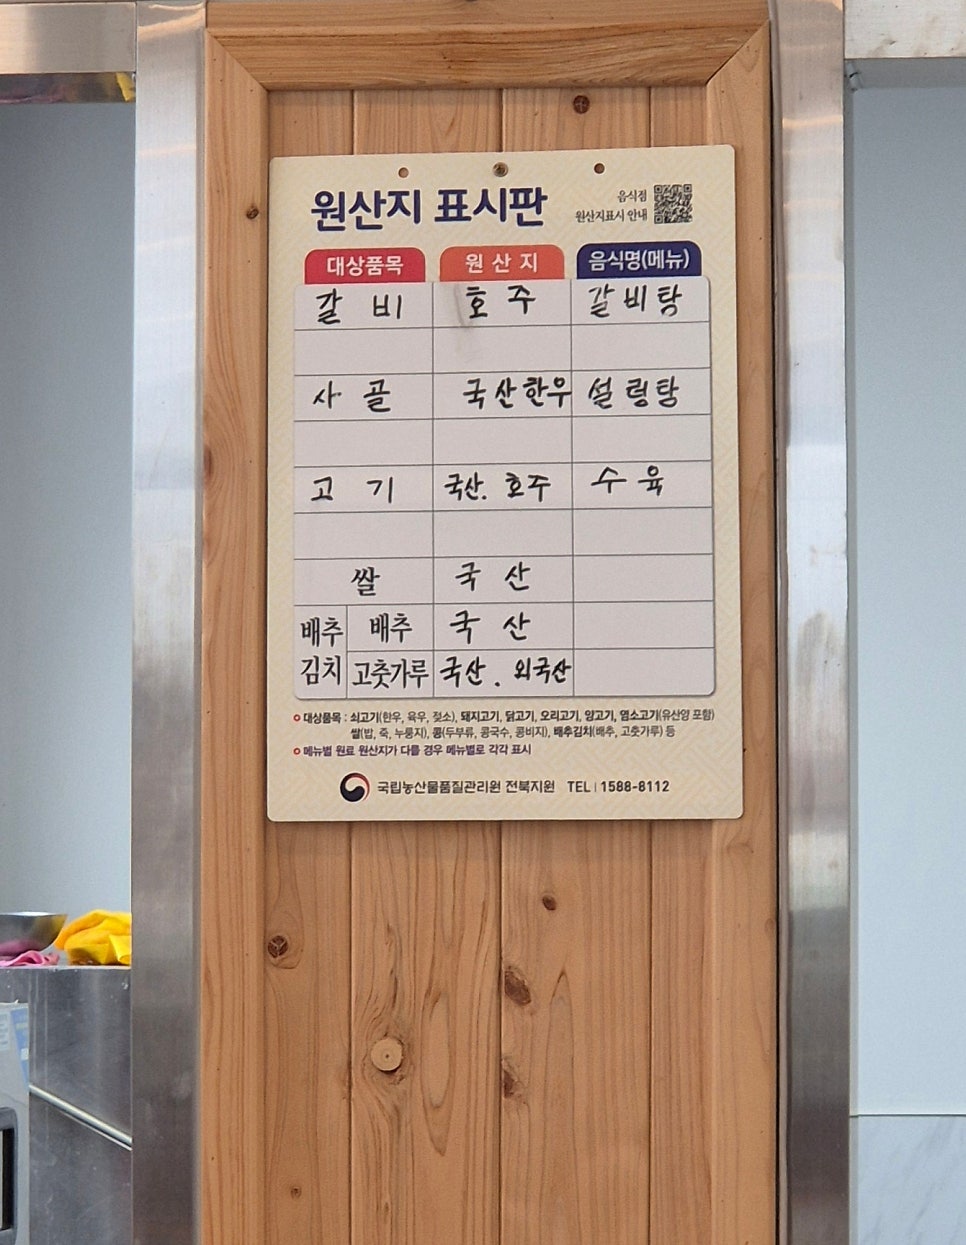 원산지 표시판
음식점
원산지표시 안내
대상품목 원산지 음식명(메뉴)
갈비 호주 갈비탕
사골 국산한우 설렁탕
고기 국산. 호주 수육
쌀 국산
배추김치 배추 국산
고춧가루 국산. 외국산
대상품목 : 쇠고기(한우, 육우, 젖소), 돼지고기, 닭고기, 오리고기, 양고기, 염소고기(유산양 포함)
쌀(밥, 죽, 누룽지), 콩(두부류, 콩국수, 콩비지), 배추김치(배추, 고춧가루) 등
메뉴별 원료 원산지가 다를 경우 메뉴별로 각각 표시
국립농산물품질관리원 전북지원 TEL | 1588-8112